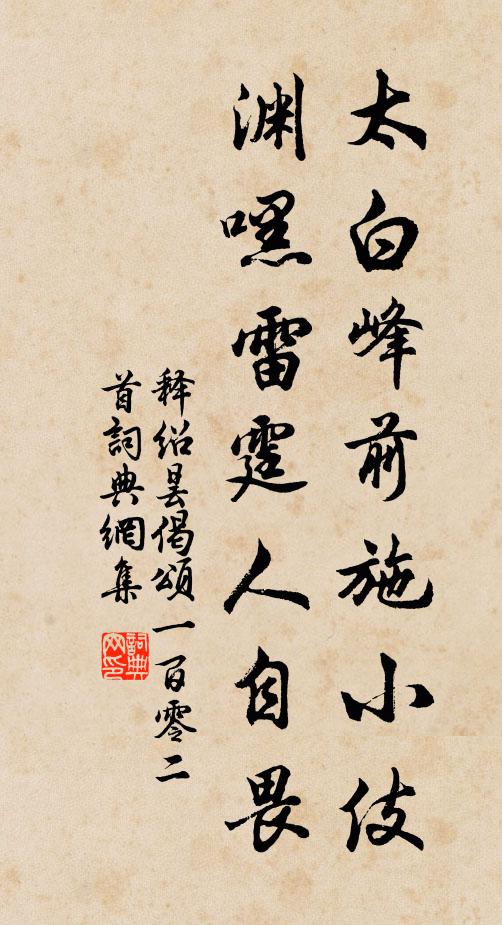 太白峰前施小伎
渊嘿雷霆人自畏
释绍昙偈頌一百零二
首詞典網集
詞典
网印